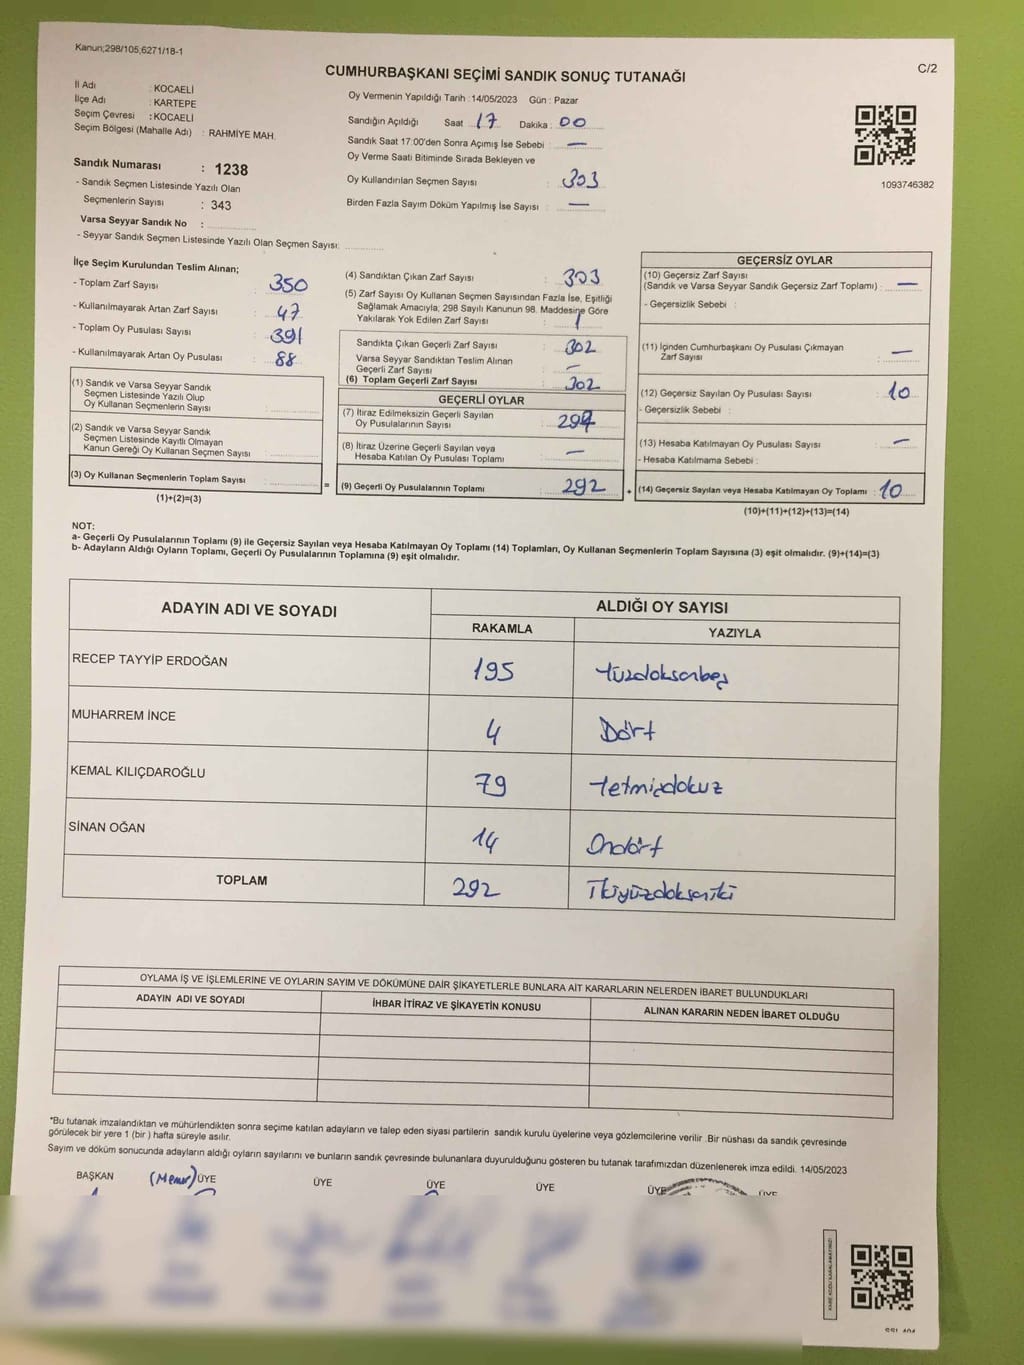 Kanun;298/105,6271/18-1
C/2
CUMHURBAŞKANI SEÇİMİ SANDIK SONUÇ TUTANAĞI
İl Adı : KOCAELİ
İlçe Adı : KARTEPE
Seçim Çevresi : KOCAELİ
Seçim Bölgesi (Mahalle Adı) : RAHMİYE MAH.
Sandık Numarası : 1238
- Sandık Seçmen Listesinde Yazılı Olan
Seçmenlerin Sayısı : 343
Varsa Seyyar Sandık No :
- Seyyar Sandık Seçmen Listesinde Yazılı Olan Seçmen Sayısı:
Oy Vermenin Yapıldığı Tarih :14/05/2023 Gün : Pazar
Sandığın Açıldığı Saat 17 Dakika : 00
Sandık Saat 17:00'den Sonra Açımış İse Sebebi : —
Oy Verme Saati Bitiminde Sırada Bekleyen ve
Oy Kullandırılan Seçmen Sayısı : 303
Birden Fazla Sayım Döküm Yapılmış İse Sayısı : —
1093746382
İlçe Seçim Kurulundan Teslim Alınan;
- Toplam Zarf Sayısı : 350
- Kullanılmayarak Artan Zarf Sayısı : 47
- Toplam Oy Pusulası Sayısı : 391
- Kullanılmayarak Artan Oy Pusulası : 88
(1) Sandık ve Varsa Seyyar Sandık
Seçmen Listesinde Yazılı Olup
Oy Kullanan Seçmenlerin Sayısı :
(2) Sandık ve Varsa Seyyar Sandık
Seçmen Listesinde Kayıtlı Olmayan
Kanun Gereği Oy Kullanan Seçmen Sayısı :
(3) Oy Kullanan Seçmenlerin Toplam Sayısı : =
(1)+(2)=(3)
(4) Sandıktan Çıkan Zarf Sayısı : 303
(5) Zarf Sayısı Oy Kullanan Seçmen Sayısından Fazla İse, Eşitliği
Sağlamak Amacıyla, 298 Sayılı Kanunun 98. Maddesine Göre
Yakılarak Yok Edilen Zarf Sayısı : 1
Sandıkta Çıkan Geçerli Zarf Sayısı : 302
Varsa Seyyar Sandıktan Teslim Alınan
Geçerli Zarf Sayısı : —
(6) Toplam Geçerli Zarf Sayısı : 302
GEÇERLİ OYLAR
(7) İtiraz Edilmeksizin Geçerli Sayılan
Oy Pusulalarının Sayısı :
(8) İtiraz Üzerine Geçerli Sayılan veya
Hesaba Katılan Oy Pusulası Toplamı : —
(9) Geçerli Oy Pusulalarının Toplamı : 292 +
GEÇERSİZ OYLAR
(10) Geçersiz Zarf Sayısı
(Sandık ve Varsa Seyyar Sandık Geçersiz Zarf Toplamı) : —
- Geçersizlik Sebebi :
(11) İçinden Cumhurbaşkanı Oy Pusulası Çıkmayan
Zarf Sayısı : —
(12) Geçersiz Sayılan Oy Pusulası Sayısı : 10
- Geçersizlik Sebebi :
(13) Hesaba Katılmayan Oy Pusulası Sayısı : —
- Hesaba Katılmama Sebebi :
(14) Geçersiz Sayılan veya Hesaba Katılmayan Oy Toplamı : 10
(10)+(11)+(12)+(13)=(14)
NOT:
a- Geçerli Oy Pusulalarının Toplamı (9) ile Geçersiz Sayılan veya Hesaba Katılmayan Oy Toplamı (14) Toplamları, Oy Kullanan Seçmenlerin Toplam Sayısına (3) eşit olmalıdır. (9)+(14)=(3)
b- Adayların Aldığı Oyların Toplamı, Geçerli Oy Pusulalarının Toplamına (9) eşit olmalıdır.
ADAYIN ADI VE SOYADI ALDIĞI OY SAYISI
RAKAMLA YAZIYLA
RECEP TAYYİP ERDOĞAN 195 Yüzdoksanbeş
MUHARREM İNCE 4 Dört
KEMAL KILIÇDAROĞLU 79 Yetmişdokuz
SİNAN OĞAN 14 Ondört
TOPLAM 292 İkiyüzdoksaniki
OYLAMA İŞ VE İŞLEMLERİNE VE OYLARIN SAYIM VE DÖKÜMÜNE DAİR ŞİKAYETLERLE BUNLARA AİT KARARLARIN NELERDEN İBARET BULUNDUKLARI
ADAYIN ADI VE SOYADI İHBAR İTİRAZ VE ŞİKAYETİN KONUSU ALINAN KARARIN NEDEN İBARET OLDUĞU
*Bu tutanak imzalandıktan ve mühürlendikten sonra seçime katılan adayların ve talep eden siyasi partilerin sandık kurulu üyelerine veya gözlemcilerine verilir .Bir nüshası da sandık çevresinde
görülecek bir yere 1 (bir ) hafta süreyle asılır.
Sayım ve döküm sonucunda adayların aldığı oyların sayılarını ve bunların sandık çevresinde bulunanlara duyurulduğunu gösteren bu tutanak tarafımızdan düzenlenerek imza edildi. 14/05/2023
BAŞKAN (Memur) ÜYE ÜYE ÜYE ÜYE ÜYE ÜYE